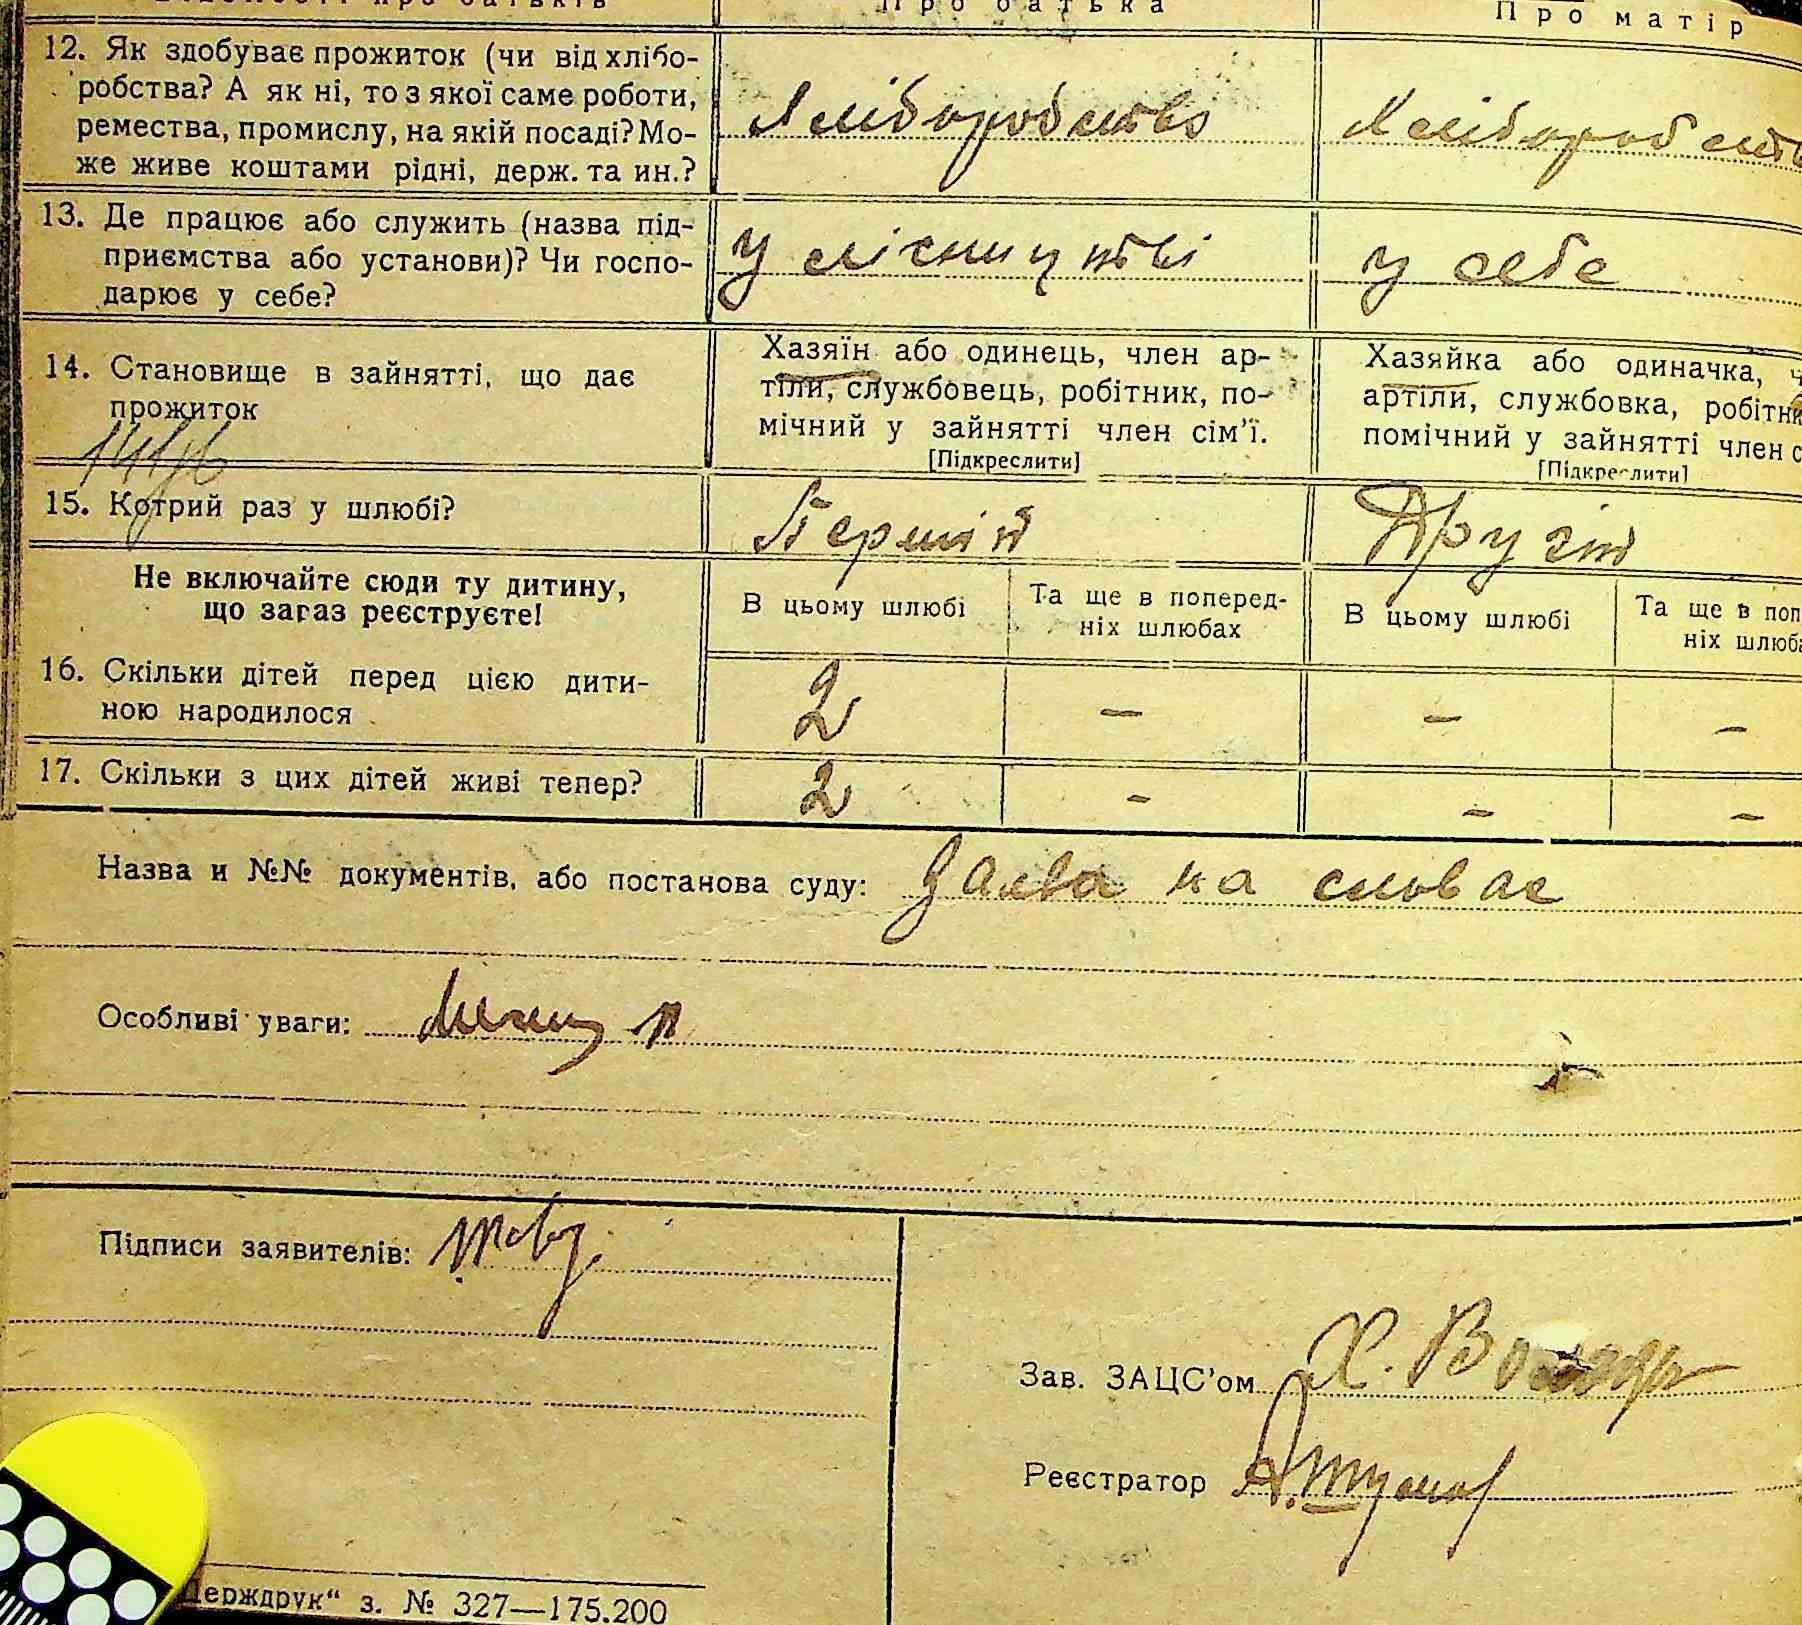 Про батька
Про матір
12. Як здобуває прожиток (чи від хлібо-
робства? А як ні, то з якої саме роботи,
ремества, промислу, на якій посаді? Мо-
же живе коштами рідні, держ. та ин.?
Хліборобство
Хліборобств
13. Де працює або служить (назва під-
приємства або установи)? Чи госпо-
дарює у себе?
у лісництві
у себе
14. Становище в зайнятті, що дає
прожиток
Хазяїн або одинець, член ар-
тіли, службовець, робітник, по-
мічний у зайнятті член сім’ї.
[Підкреслити]
Хазяйка або одиначка, ч
артіли, службовка, робітни
помічний у зайнятті член с
[Підкреслити]
15. Котрий раз у шлюбі?
Першій
Другій
Не включайте сюди ту дитину,
що зараз реєструєте!
В цьому шлюбі
Та ще в поперед-
ніх шлюбах
В цьому шлюбі
Та ще в поп
ніх шлюба
16. Скільки дітей перед цією дити-
ною народилося
2 – – –
17. Скільки з цих дітей живі тепер?
2 - – –
Назва и №№ документів, або постанова суду: Заява на словах
Особливі уваги:
Підписи заявителів:
Зав. ЗАЦС’ом Х.
Реєстратор А.
Держдрук“ з. № 327—175.200